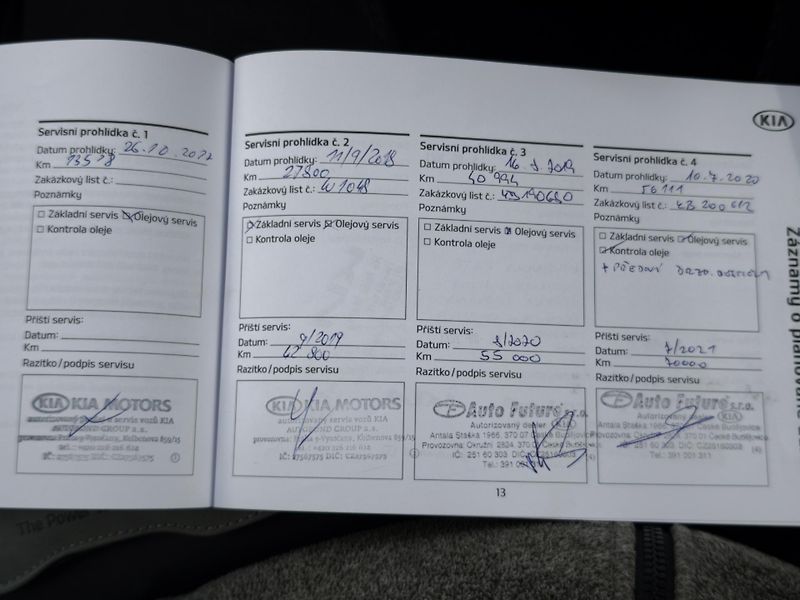 KIA
Servisní prohlídka č. 1
Datum prohlídky: 26.10.2017
Km 13578
Zakázkový list č.:
Poznámky
Základní servis Olejový servis
Kontrola oleje
Příští servis:
Datum:
Km
Razítko/podpis servisu
KIA KIA MOTORS
autorizovaný prodejce a servis vozů KIA
Servisní prohlídka č. 2
Datum prohlídky: 11/9/2018
Km 27800
Zakázkový list č.:
Poznámky
Základní servis Olejový servis
Kontrola oleje
Příští servis:
Datum: 9/2019
Km 42 800
Razítko/podpis servisu
KIA KIA MOTORS
autorizovaný prodejce a servis vozů KIA
AUTOND GROUP a.s.
IČ: 27567575 DIČ: CZ27567575
Servisní prohlídka č. 3
Datum prohlídky: 16.8.2019
Km 40 994
Zakázkový list č.:
Poznámky
Základní servis Olejový servis
Kontrola oleje
Příští servis:
Datum: 8/2020
Km 55 000
Razítko/podpis servisu
Auto Future s.r.o.
Autorizovaný dealer KIA
Antala Staška 1966, 370 07 České Budějovice
Provozovna: Okružní 2824, 370 01 České Budějovice
IČ: 251 60 303 DIČ: CZ25160303
Servisní prohlídka č. 4
Datum prohlídky: 10.7.2020
Km 56111
Zakázkový list č.: KB 200 612
Poznámky
Základní servis Olejový servis
Kontrola oleje
+ PŘEDNÍ
Příští servis:
Datum: 7/2021
Km 70000
Razítko/podpis servisu
Auto Future s.r.o.
Autorizovaný dealer
Antala Staška 1966, 370 07 České Budějovice
Provozovna: Okružní 2824, 370 01 České Budějovice
Tel.: 391 001 311
13
Záznamy o plánované
The Power